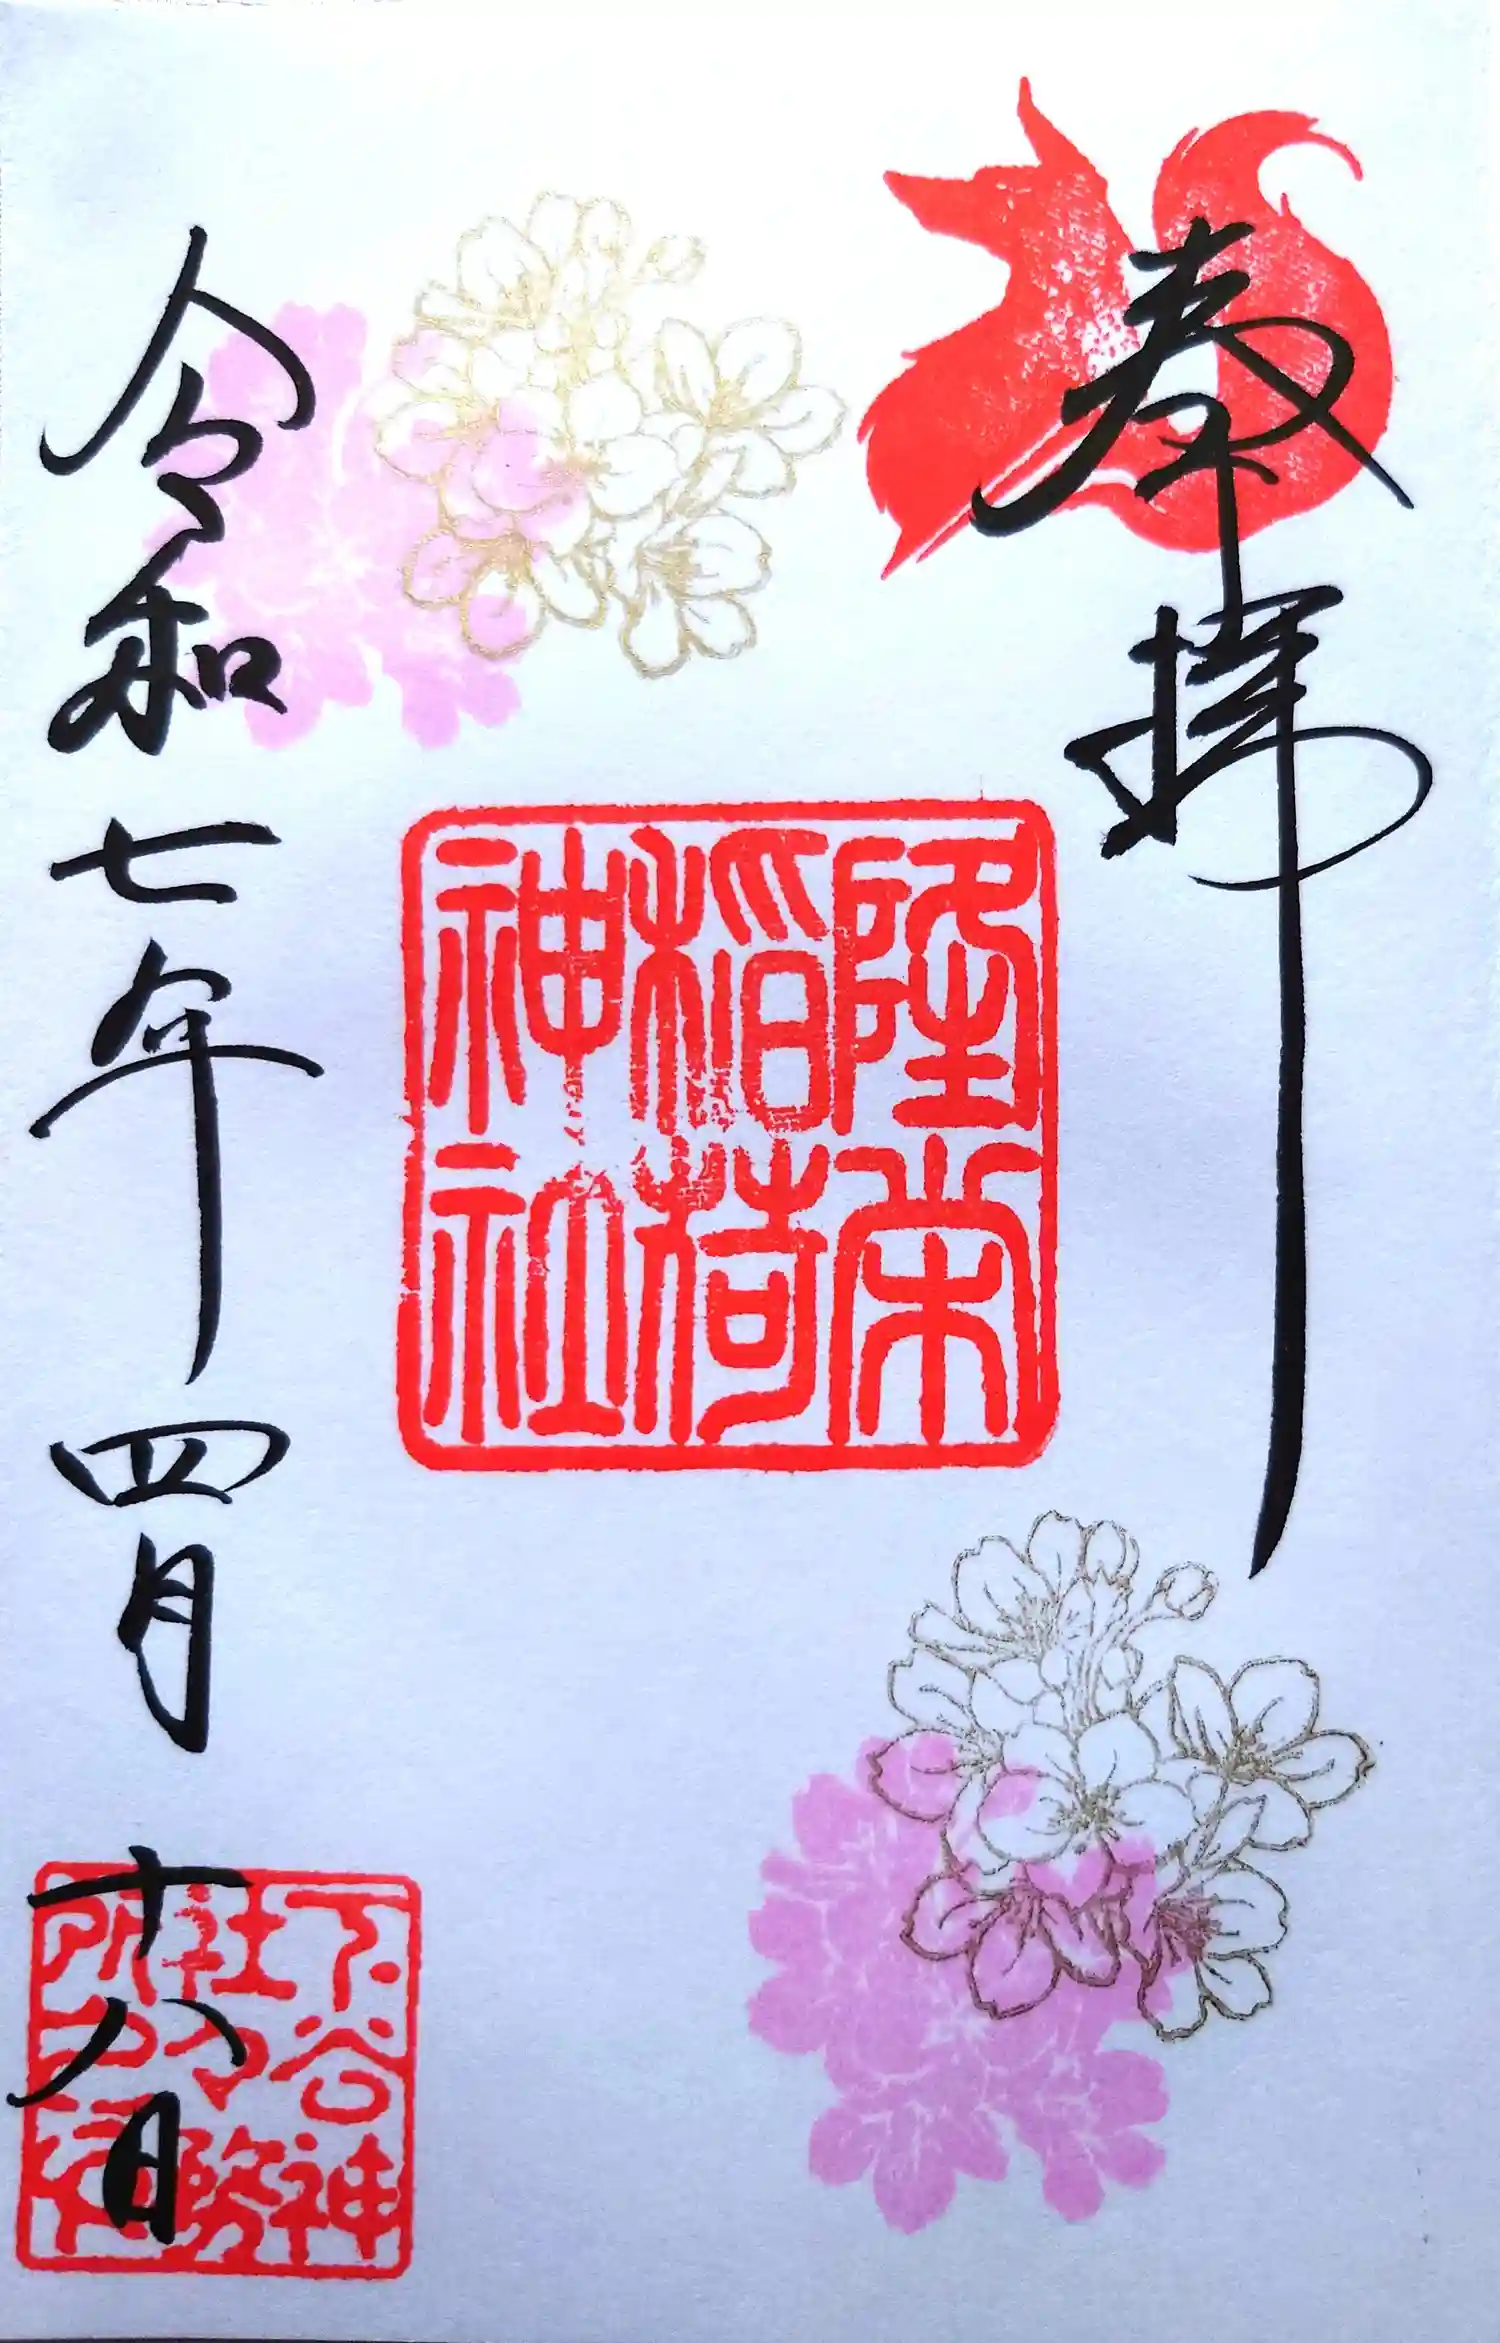 奉拝
隆栄
稲荷
神社
令和七年四月十八日
下谷神
社々務
所之印